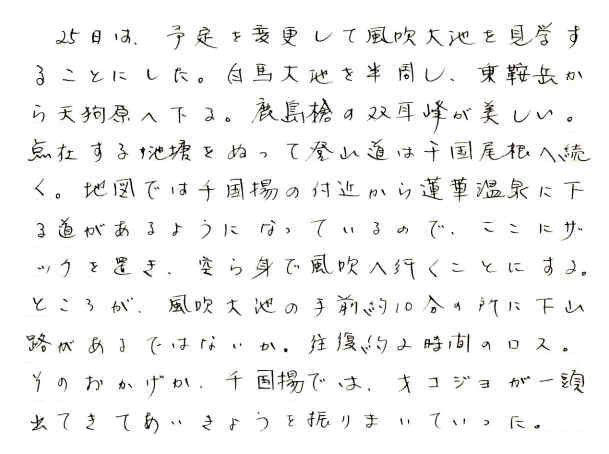 25日は、予定を変更して風吹大池を見学す
ることにした。白馬大池を半周し、東鞍岳か
ら天狗原へ下る。鹿島槍の双耳峰が美しい。
点在する池塘をぬって登山道は千国尾根へ続
く。地図では千国揚の付近から蓮華温泉に下
る道があるようになっているので、ここにザ
ックを置き、空ら身で風吹へ行くことにする。
ところが、風吹大池の手前約10分の所に下山
路があるではないか。往復約2時間のロス。
そのおかげか、千国揚では、オコジョが一頭
出てきてあいきょうを振りまいていった。